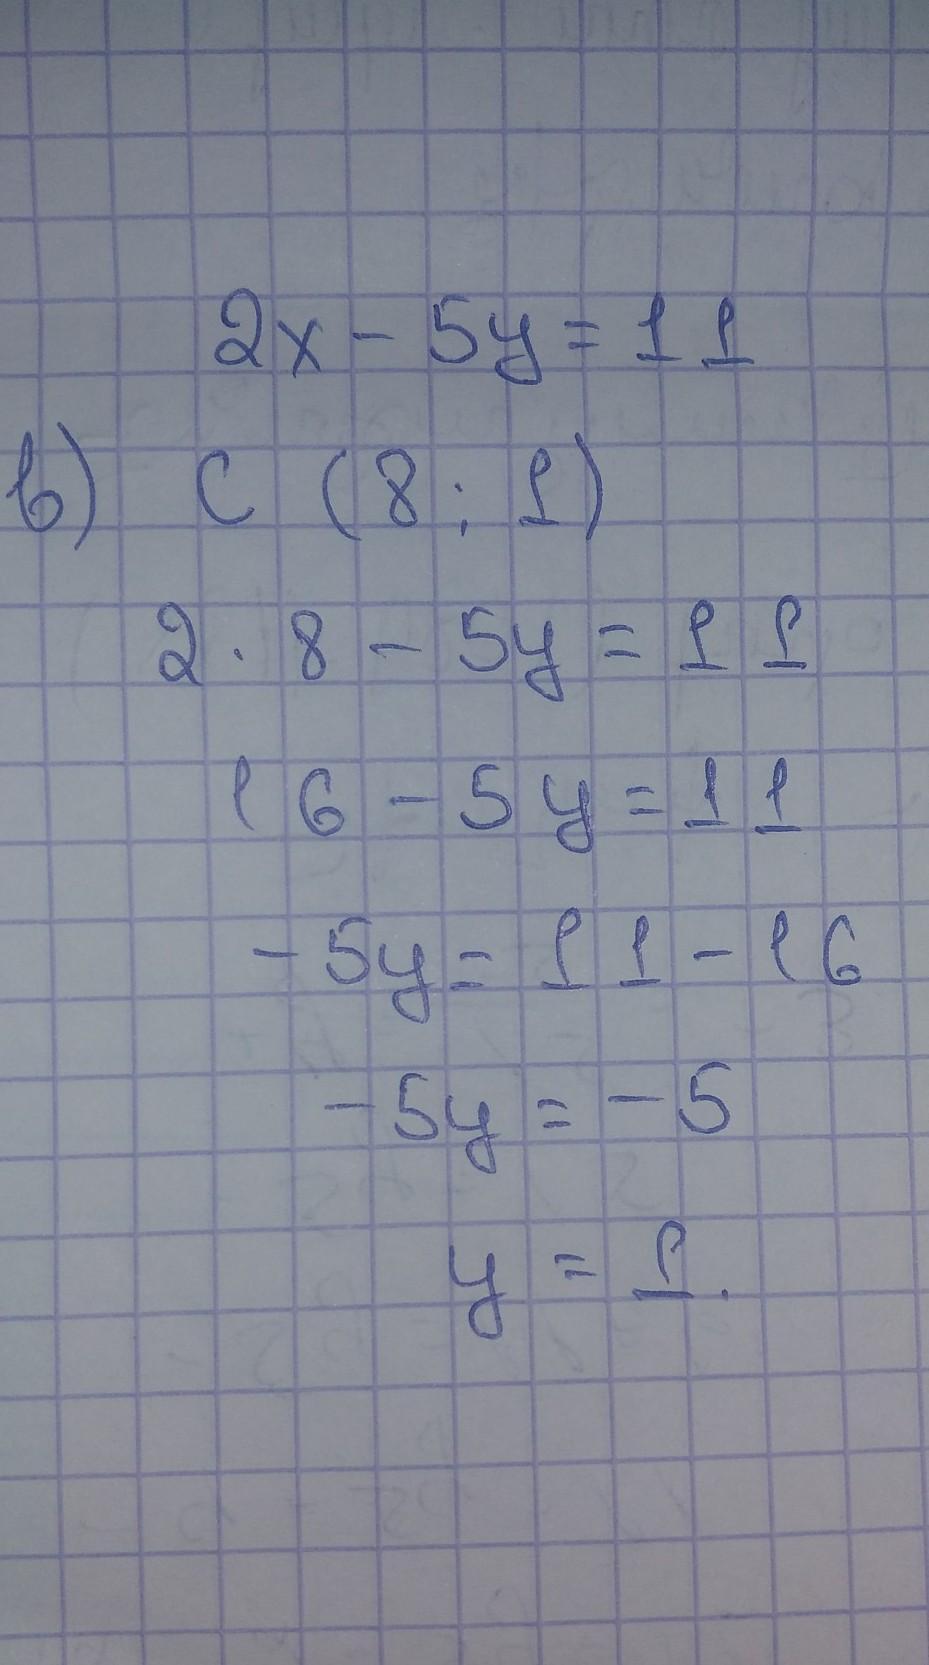 2x - 5y = 11
в) C (8; 1)
2 · 8 - 5y = 11
16 - 5y = 11
-5y = 11 - 16
-5y = -5
y = 1.